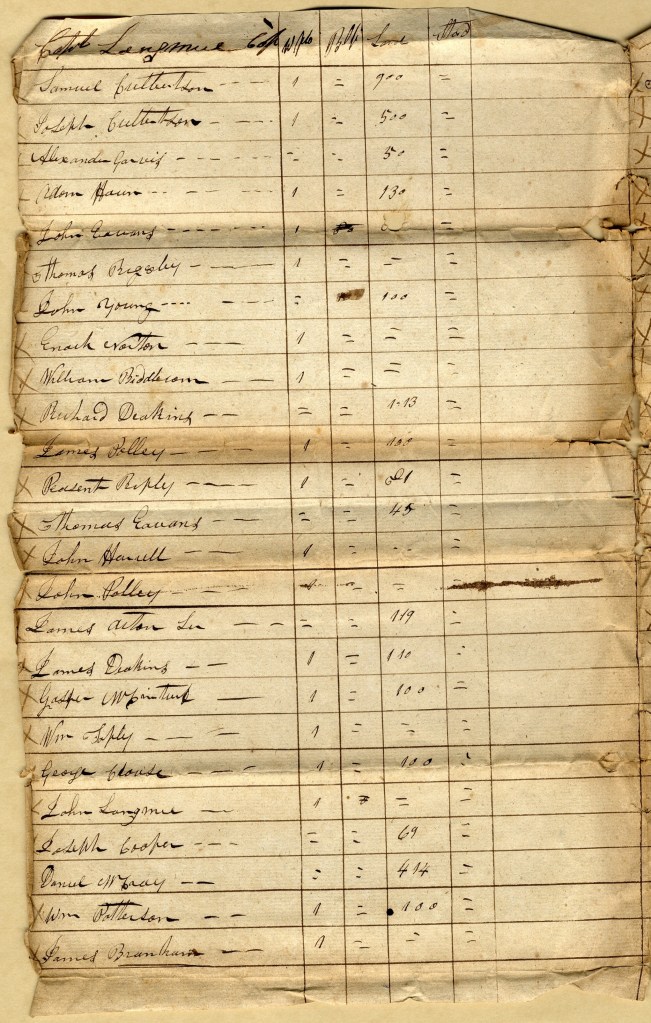 Capt Longmire Cop W Pole B Pole Land Stud
Samuel Cutbertson — 1 = 900 =
Joseph Cutbertson - - - - 1 = 500 =
Alexander Garvis - - - - = = 50 =
Adam Haun - - - - 1 = 130 =
John Eavans - - - - 1 =
Thomas Rigsby - — 1 = = =
John Young - - - - = 100 =
Enoch Norton - - - 1 = = =
William Biddlecom — — 1 = = =
Richard Deakins — — = = 113 =
James Polley — — 1 = 100 =
Peasent Riply — — 1 = 81 =
Thomas Eavans — — — = = 45 =
John Harrell — — 1 = - - =
John Polley — — 1 = =
James Acton Sr — — = = 119 =
James Deakins — — 1 = 110 =
Gasper — 1 = 100 =
Wm Siply — — — 1 = = =
George Clouse — — — 1 = 100 =
John Longmire — 1 = = =
Joseph Cooper — — = = 69 =
Daniel McCray — — = = 414 =
Wm Patterson — — 1 = 100 =
James Branham — 1 = = =